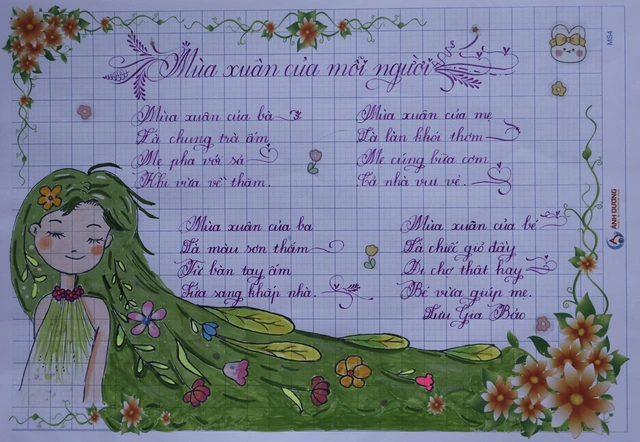 Mùa xuân của mỗi người
Mùa xuân của bà
Là chung trà ấm
Mẹ pha với sả
Khi vừa về thăm.
Mùa xuân của mẹ
Là làn khói thơm
Mẹ cúng bữa cơm
Cả nhà vui vẻ.
Mùa xuân của ba
Là màu sơn thắm
Từ bàn tay ấm
Sửa sang khắp nhà.
Mùa xuân của bé
Là chiếc giỏ đầy
Đi chợ thật hay
Bé vừa giúp mẹ.
Lưu Gia Bảo
MS4
ÁNH DƯƠNG